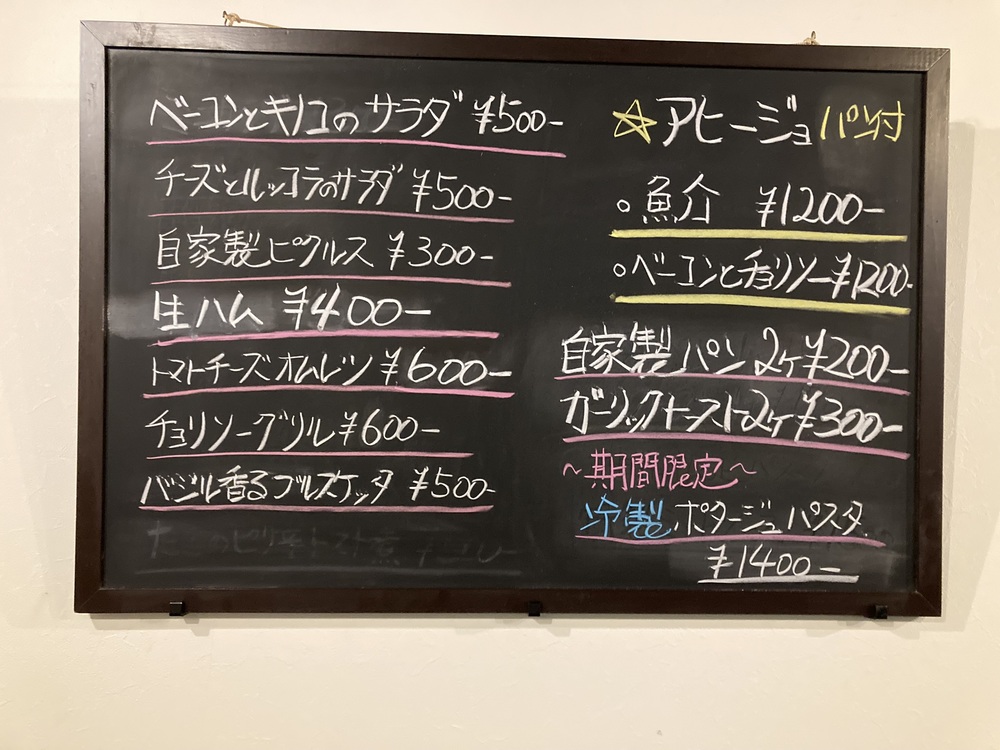 ベーコンとキノコのサラダ ¥500-
チーズとルッコラのサラダ ¥500-
自家製ピクルス ¥300-
生ハム ¥400-
トマトチーズオムレツ ¥600-
チョリソーグリル ¥600-
バジル香るブルスケッタ ¥500-
☆アヒージョ パン付
○魚介 ¥1200-
○ベーコンとチョリソー ¥1200-
自家製パン 2ヶ ¥200-
ガーリックトースト2ヶ ¥300-
~期間限定~
冷製 ポタージュパスタ
¥1400-